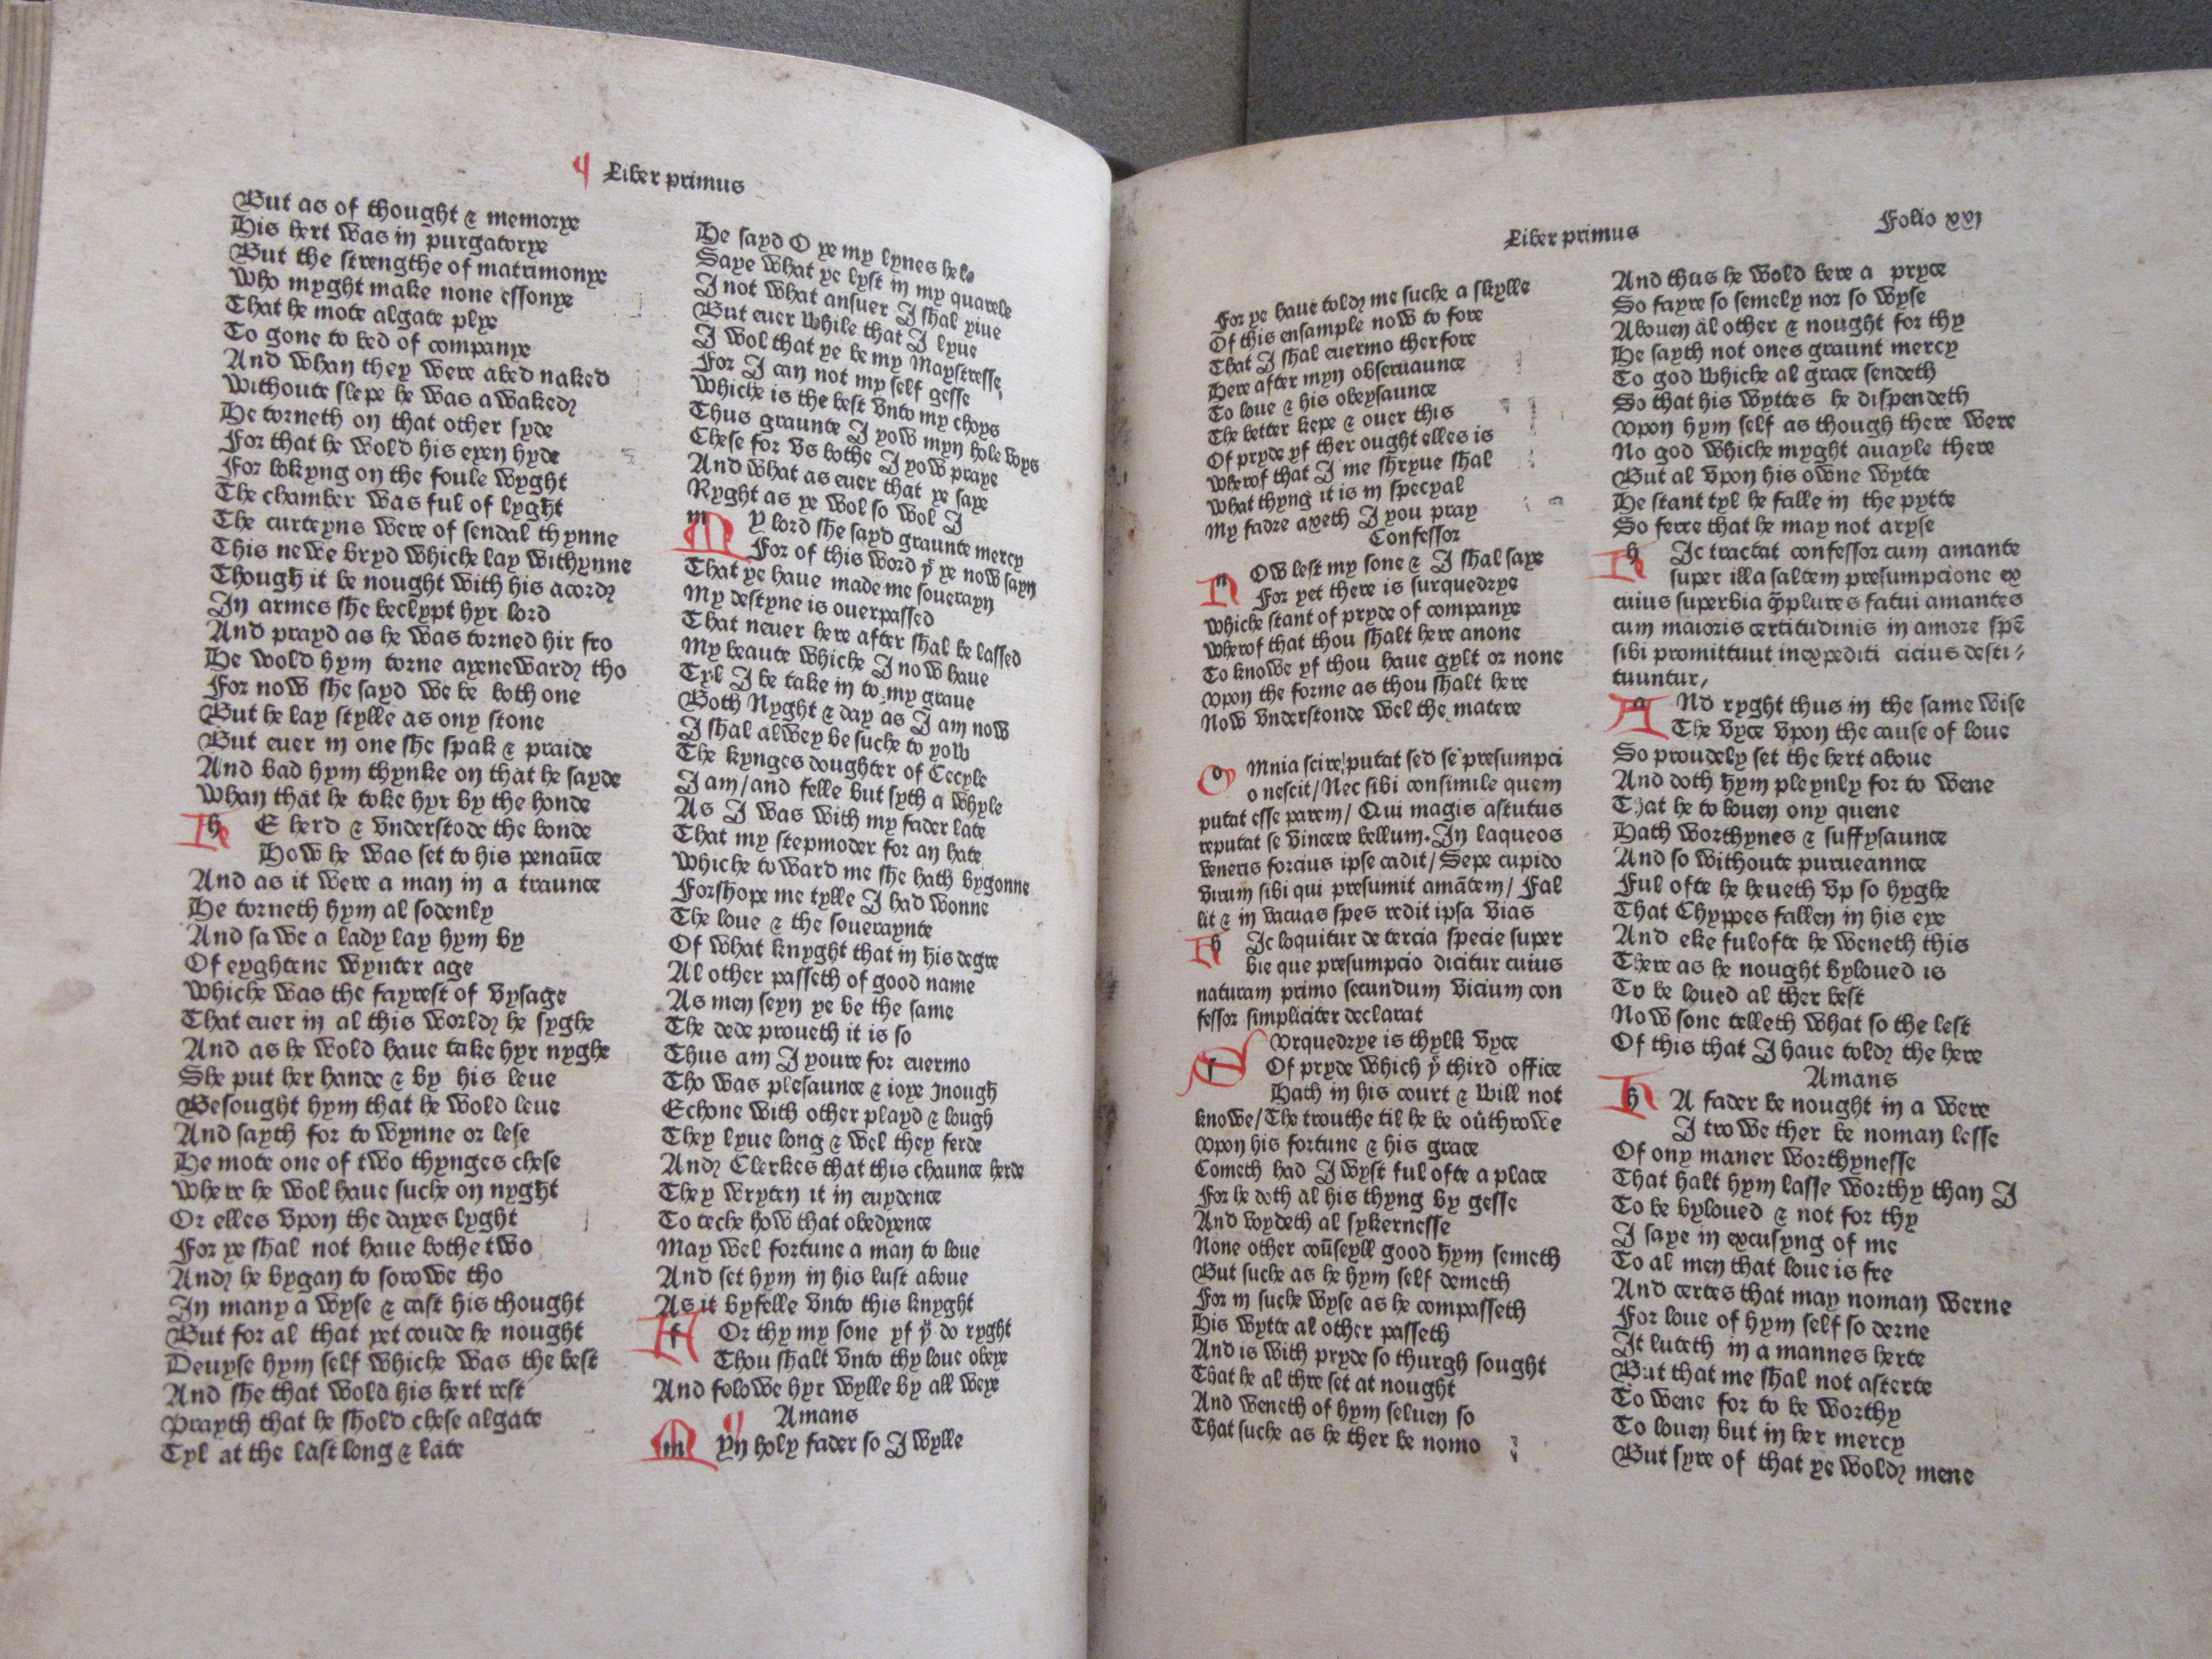 ¶ Liber primus
But as of thought & memorye
His hert was in purgatorye
But the strengthe of matrimonye
Who myght make none essonye
That he mote algate plye
To gone to bed of companye
And whan they were abed naked
Withoute slepe he was awaked
He torneth on that other syde
For that he wold his eyen hyde
For lokyng on the foule wyght
The chamber was ful of lyght
The curteyns were of sendal thynne
This newe bryd whiche lay withynne
Though it be nought with his acord
In armes she beclypt hyr lord
And prayd as he was torned hir fro
He wold hym torne ayeneward tho
For now she sayd we be both one
But he lay stylle as ony stone
But euer in one she spak & praide
And bad hym thynke on that he sayde
Whan that he toke hyr by the honde
hE herd & vnderstode the bonde
How he was set to his penaūce
And as it were a man in a traunce
He torneth hym al sodenly
And sawe a lady lay hym by
Of eyghtene wynter age
Whiche was the fayrest of vysage
That euer in al this world he syghe
And as he wold haue take hyr nyghe
She put her hande & by his leue
Besought hym that he wold leue
And sayth for to wynne or lese
He mote one of two thynges chese
Where he wol haue suche on nyght
Or elles vpon the dayes lyght
For ye shal not haue bothe two
And he bygan to sorowe tho
In many a wyse & cast his thought
But for al that yet coude he nought
Deuyse hym self whiche was the best
And she that wold his hert rest
Prayth that he shold chese algate
Tyl at the last long & late
He sayd O ye my lyues hele
Saye what ye lyst in my quarele
I not what ansuer I shal yiue
But euer while that I lyue
I wol that ye be my Maystresse
For I can not my self gesse
Whiche is the best vnto my choys
Thus graunte I yow myn hole voys
Chese for vs bothe I yow praye
And what as euer that ye saye
Ryght as ye wol so wol I
mY lord she sayd graunte mercy
For of this word yͭ ye now sayn
That ye haue made me souerayn
My destyne is ouerpassed
That neuer here after shal be lassed
My beaute whiche I now haue
Tyl I be take in to my graue
Both Nyght & day as I am now
I shal alwey be suche to yow
The kynges doughter of Cecyle
I am/and felle but syth a whyle
As I was with my fader late
That my stepmoder for an hate
Whiche toward me she hath bygonne
Forshope me tylle I had wonne
The loue & the soueraynte
Of what knyght that in his degre
Al other passeth of good name
As men seyn ye be the same
The dede proueth it is so
Thus am I youre for euermo
Tho was plesaunce & ioye Jnough
Echone with other playd & lough
They lyue long & wel they ferde
And Clerkes that this chaunce herde
They wryten it in euydence
To teche how that obedyence
May wel fortune a man to loue
And set hym in his lust aboue
As it byfelle vnto this knyght
fOr thy my sone yf yͧ do ryght
Thou shalt vnto thy loue obeye
And folowe hyr wylle by all weye
Amans
mYn holy fader so I wylle
Liber primus
Folio xxj
For ye haue told me suche a skylle
Of this ensample now to fore
That I shal euermo therfore
Here after myn obseruaunce
To loue & his obeysaunce
The better kepe & ouer this
Of pryde yf ther ought elles is
Wherof that I me shryue shal
What thyng it is in specyal
My fadre axeth I you pray
Confessor
nOw lest my sone & I shal saye
For yet there is surquedrye
Whiche stant of pryde of companye
Wherof that thou shalt here anone
To knowe yf thou haue gylt or none
Vpon the forme as thou shalt here
Now vnderstonde wel the matere
oMnia scire putat sed se presumpci
o nescit/Nec sibi consimile quem
putat esse parem/Qui magis astutus
reputat se vincere bellum.In laqueos
veneris forcius ipse cadit/Sepe cupido
virum sibi qui presumit amātem/Fal
lit & in vacuas spes redit ipsa vias
hIc loquitur de tercia specie super
bie que presumpcio dicitur cuius
naturam primo secundum vicium con
fessor simpliciter declarat
sVrquedrye is thylk vyce
Of pryde which yͤ third office
Hath in his court & will not
knowe/The trouthe til he be outhrowe
Vpon his fortune & his grace
Cometh had I wyst ful ofte a place
For he doth al his thyng by gesse
And voydeth al sykernesse
None other coūseyll good hym semeth
But suche as he hym self demeth
For in suche wyse as he compasseth
His wytte al other passeth
And is with pryde so thurgh sought
That he al thre set at nought
And weneth of hym seluen so
That suche as he ther be nomo
And thus he wold bere a pryce
So fayre so semely nor so wyse
Abouen al other & nought for thy
He sayth not ones graunt mercy
To god whiche al grace sendeth
So that his wyttes he dispendeth
Vpon hym self as though there were
No god whiche myght auayle there
But al vpon his owne wytte
He stant tyl he falle in the pytte
So ferre that he may not aryse
hIc tractat confessor cum amante
super illa saltem presumpcione ex
cuius superbia qͫplures fatui amantes
cum maioris certitudinis in amore spē
sibi promittunt inexpediti cicius desti⸗
tuuntur,
aNd ryght thus in the same wise
The vyce vpon the cause of loue
So proudely set the hert aboue
And doth hym pleynly for to wene
That he to louen ony quene
Hath worthynes & suffysaunce
And so withoute purueannce
Ful ofte he heueth vp so hyghe
That Chyppes fallen in his eye
And eke fulofte he weneth this
There as he nought byloued is
To be loued al ther best
Now sone telleth what so the lest
Of this that I haue told the here
Amans
hA fader be nought in a were
I trowe ther be noman lesse
Of ony maner worthynesse
That halt hym lasse worthy than I
To be byloued & not for thy
I saye in excusyng of me
To al men that loue is fre
And certes that may noman werne
For loue of hym self so derne
It luteth in a mannes herte
But that me shal not asterte
To wene for to be worthy
To louen but in her mercy
But syre of that ye wold mene